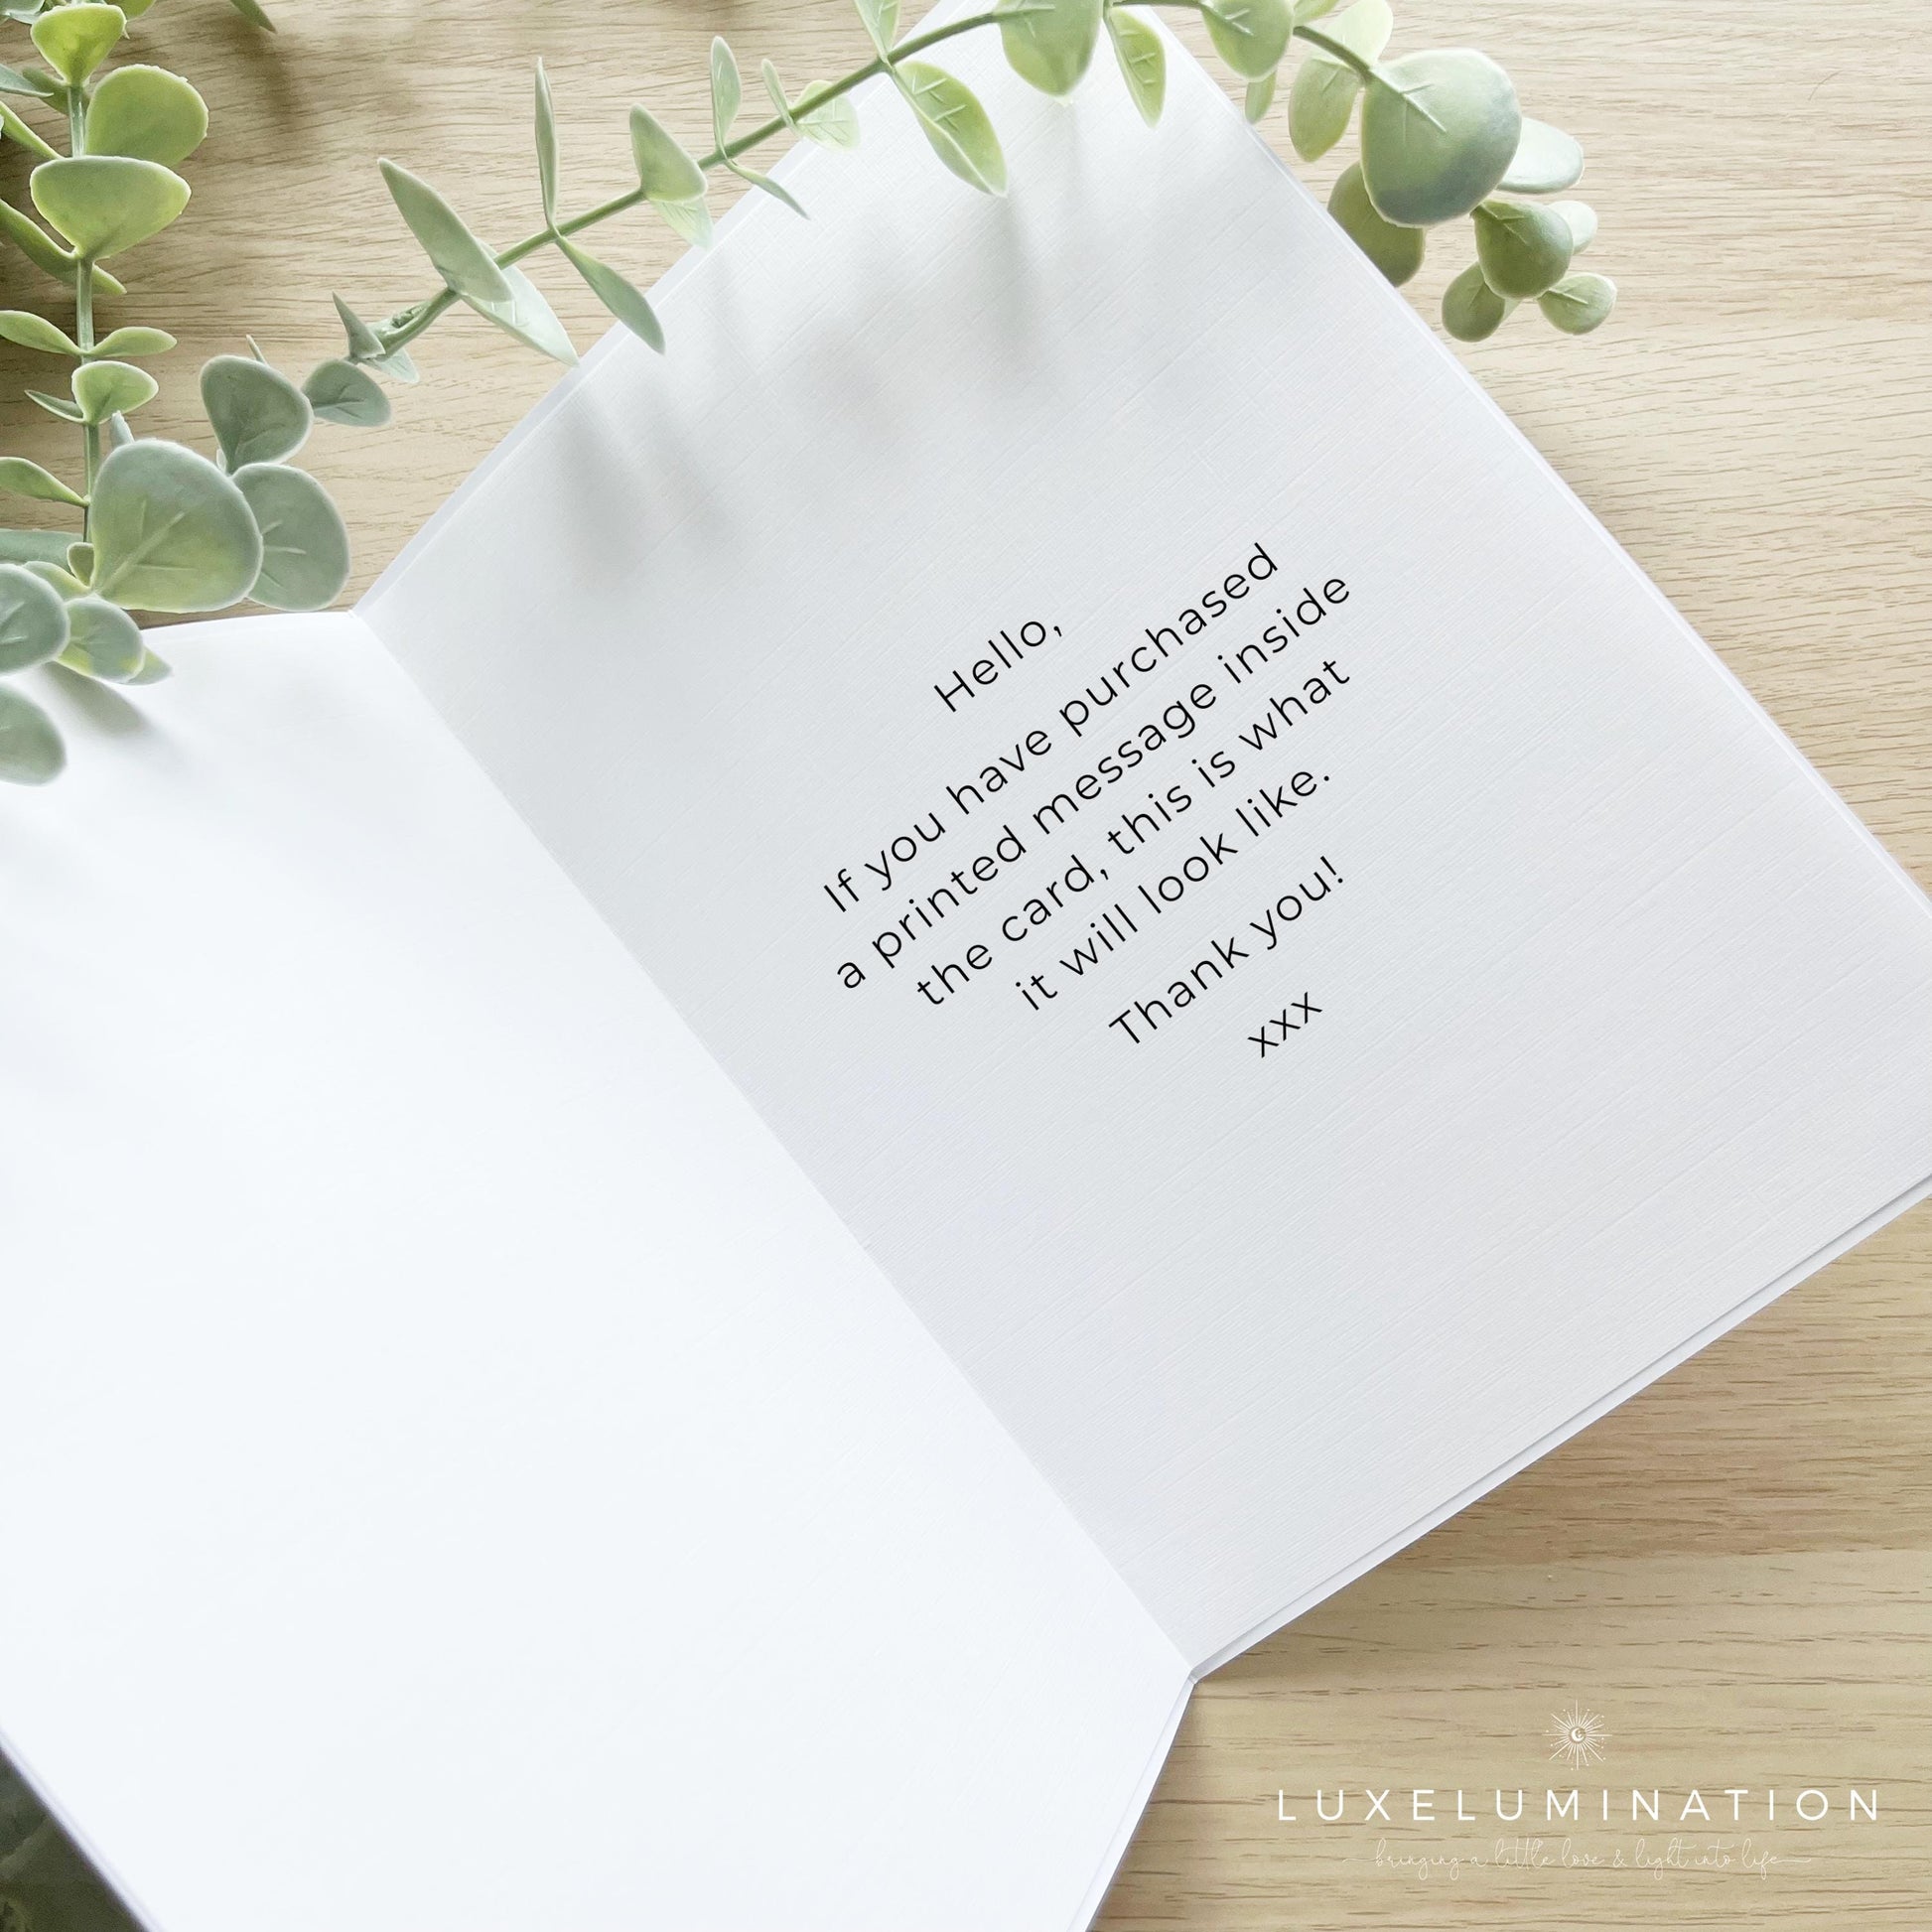 Hello,
If you have purchased
a printed message inside
the card, this is what
it will look like.
Thank you!
xxx
LUXELUMINATION
bringing a little love & light into life